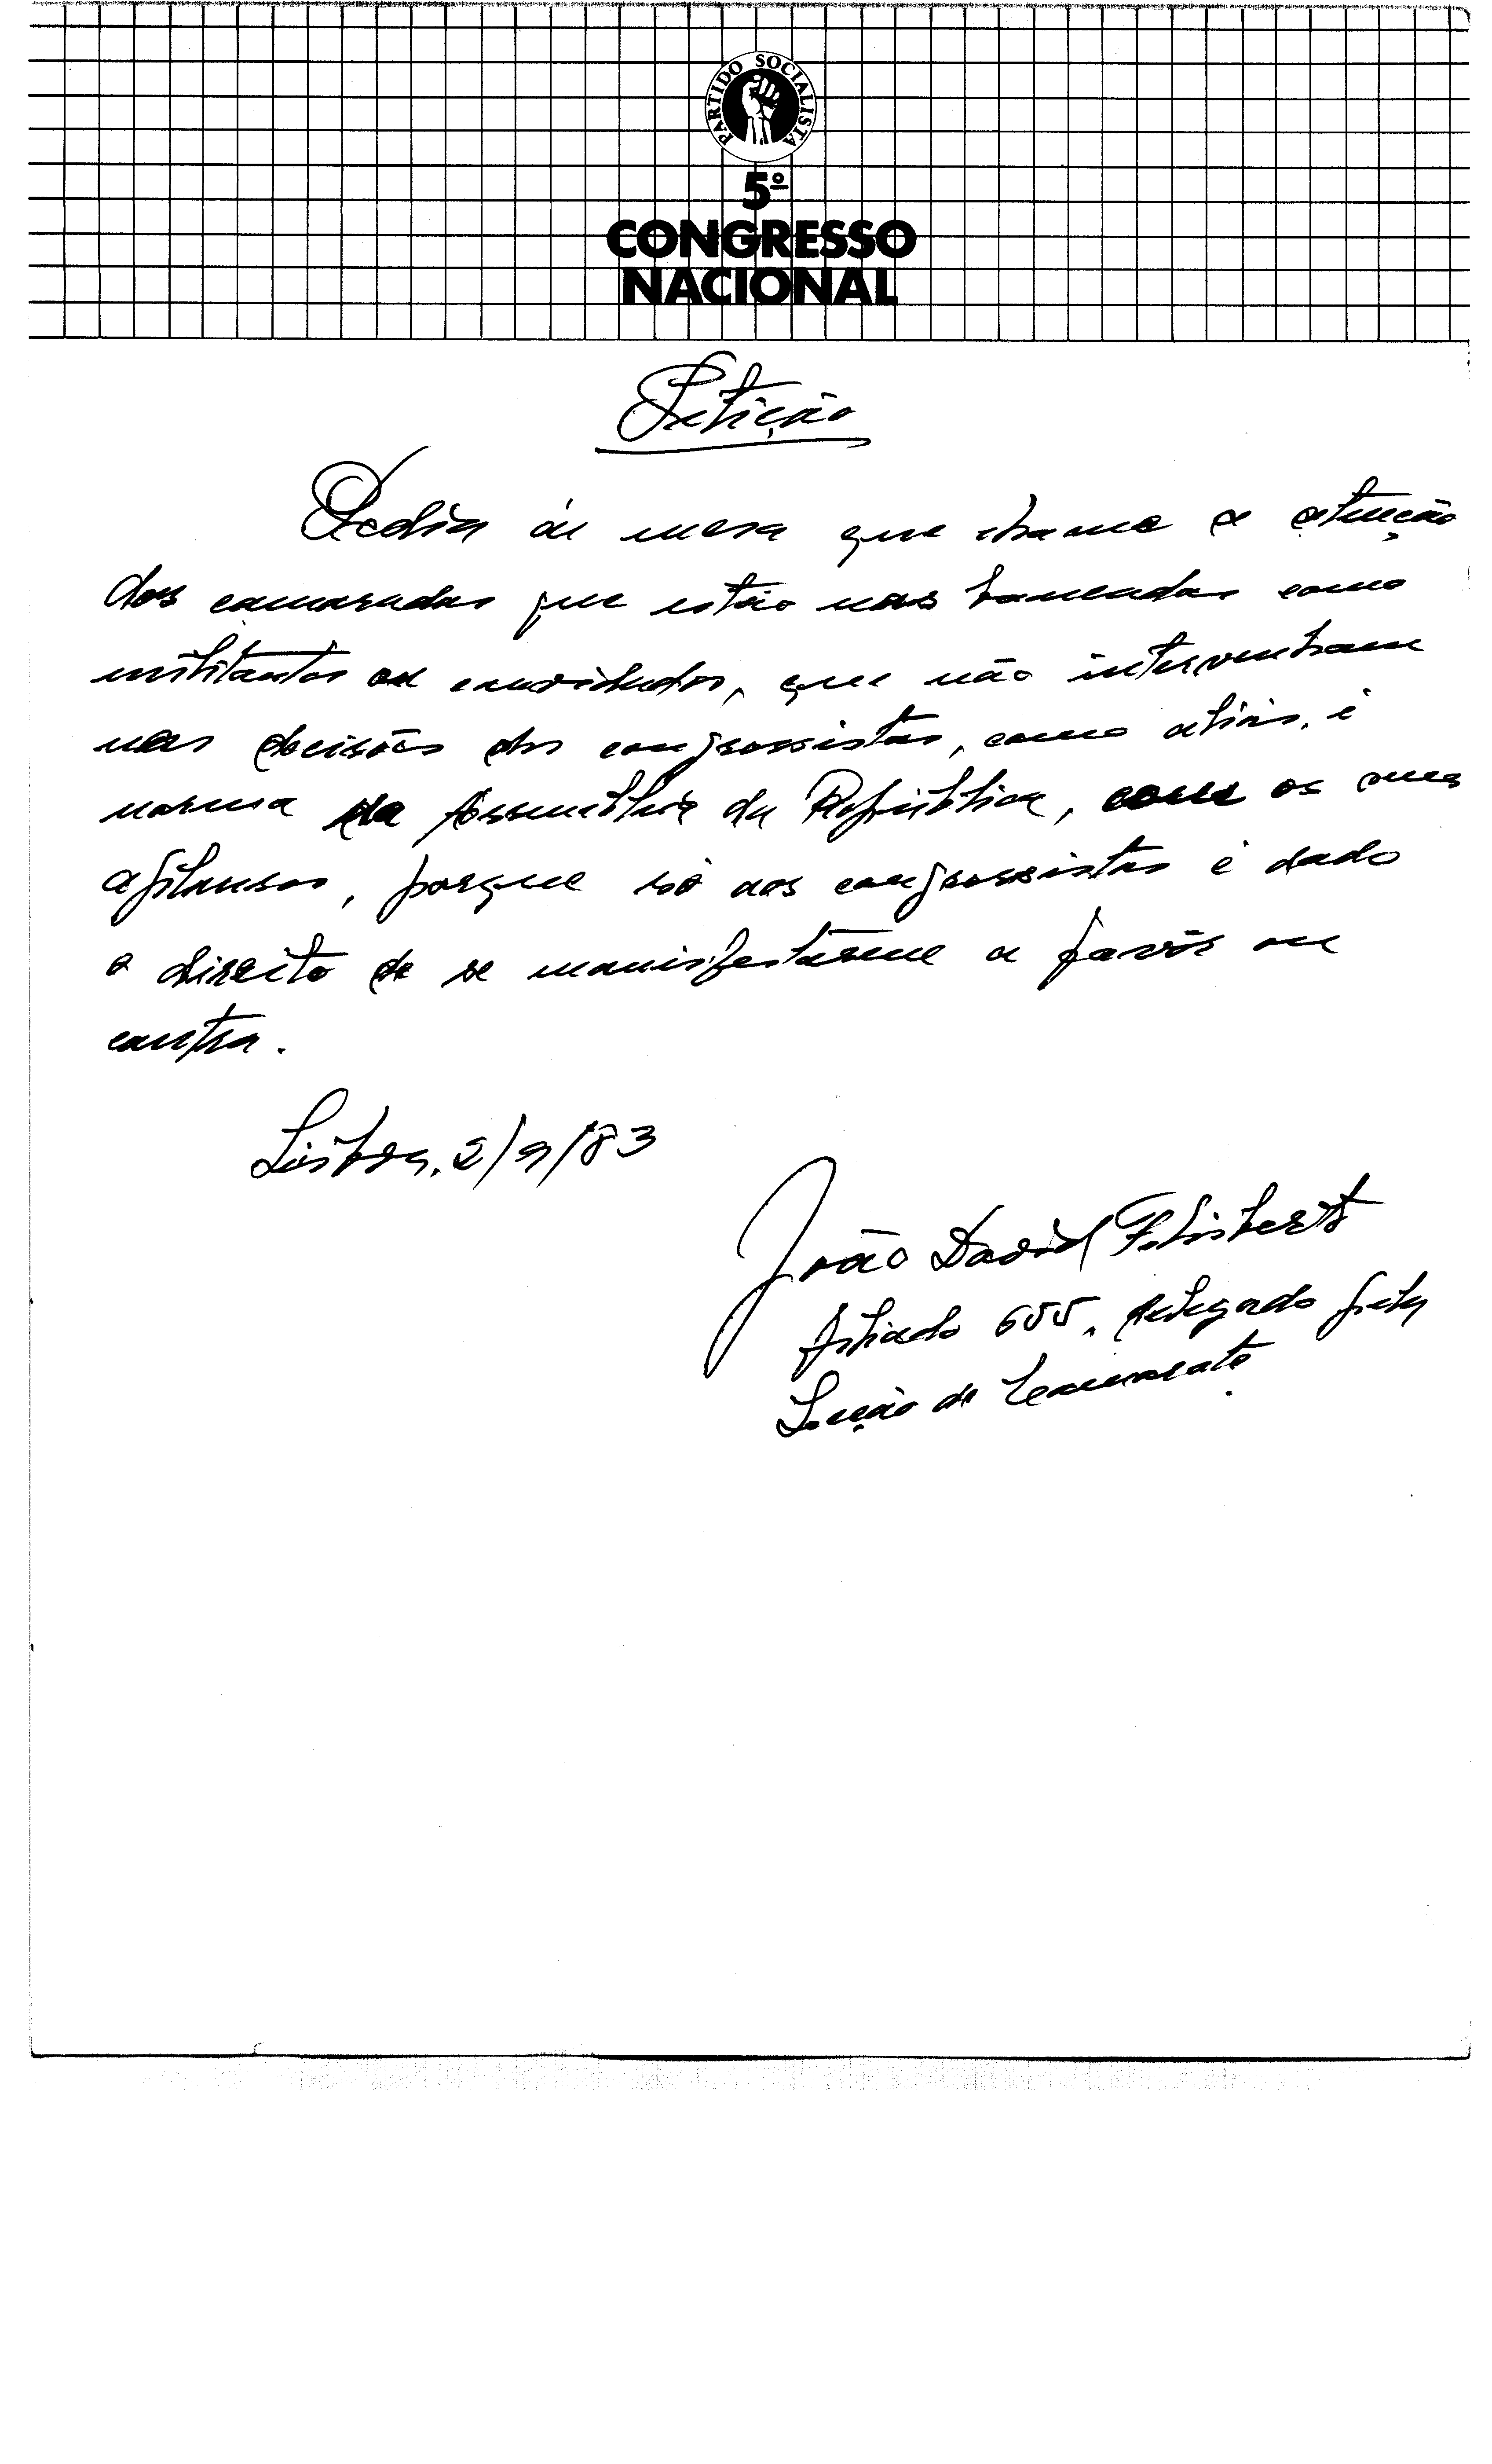 PARTIDO SOCIALISTA
5º
CONGRESSO
NACIONAL
Petição
Pedia á mesa que chame a atenção
dos camaradas que estão nas bancadas como
militantes ou convidados, que não intervenham
nas decisões dos congressistas, como aliás, é
norma da Assembleia da República, com os seus
aplausos, porque só aos congressistas é dado
o direito de se manifestarem a favôr ou
contra.
Lisboa, 2/9/83
João David Felisberto
filiado 655, delegado pela
Secção de Camarate.